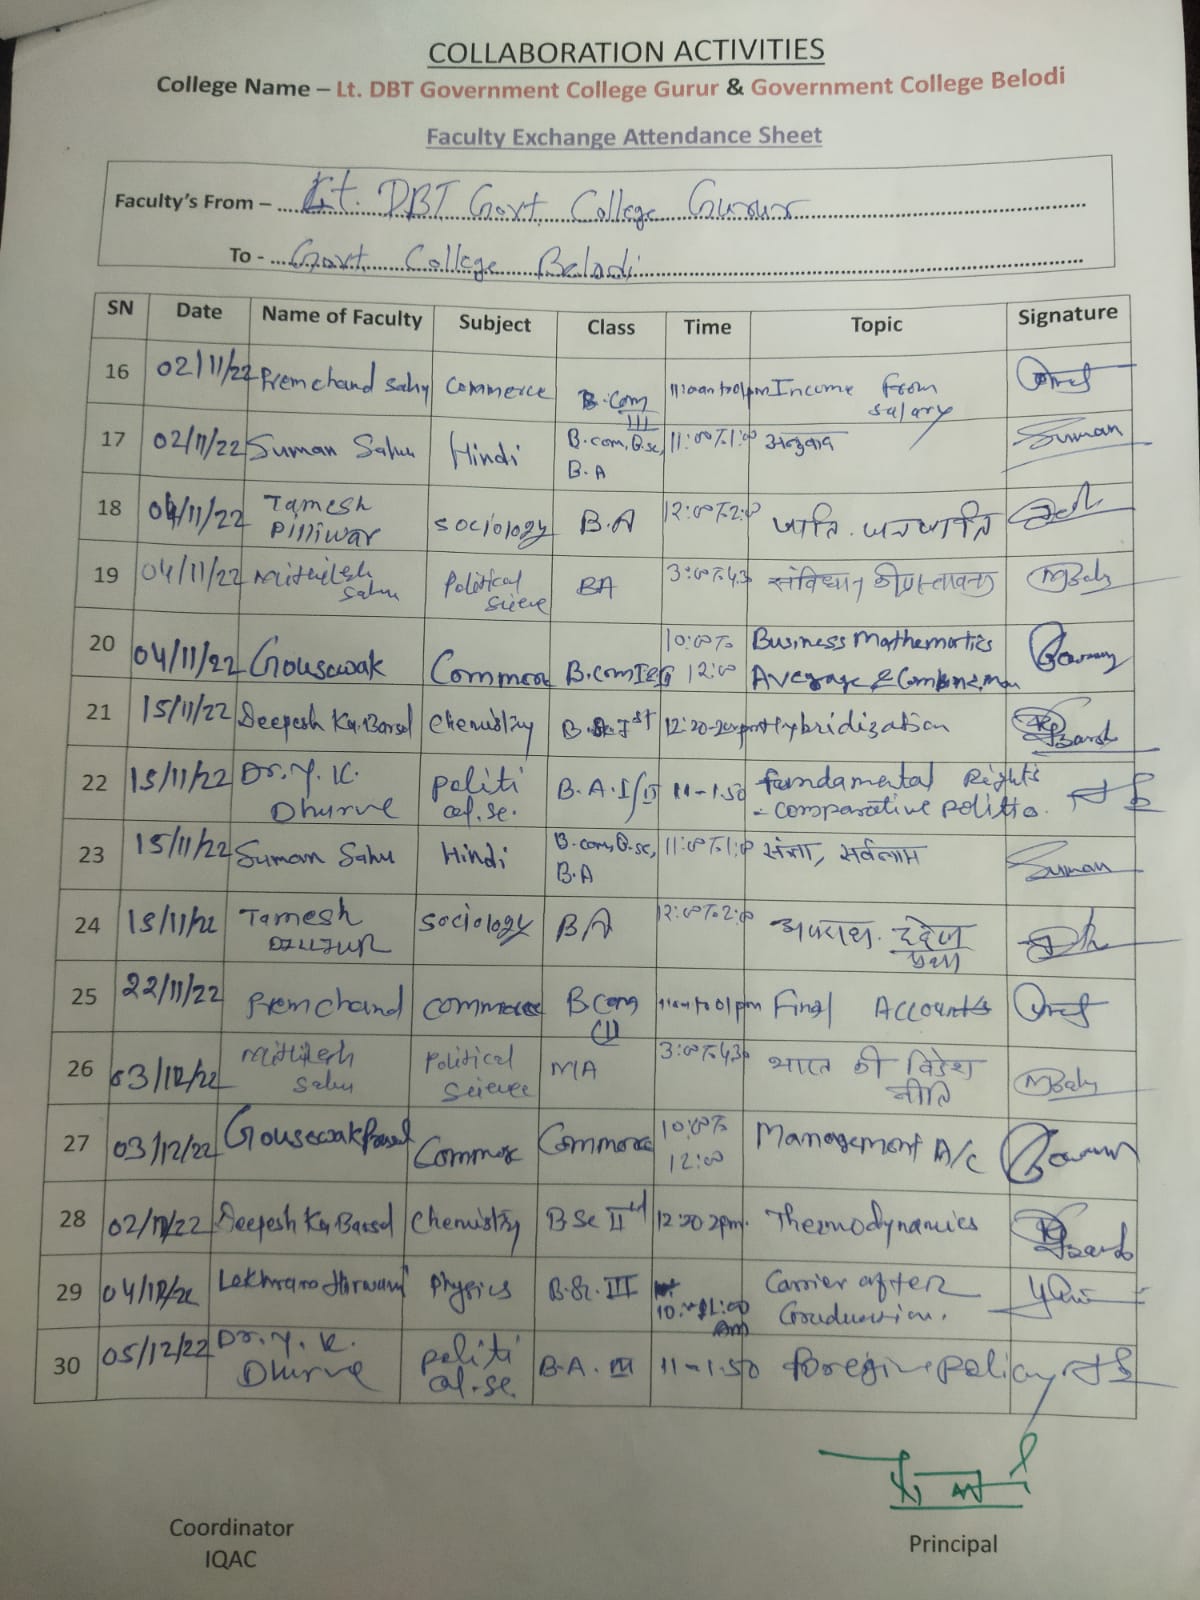 COLLABORATION ACTIVITIES
College Name – Lt. DBT Government College Gurur & Government College Belodi
Faculty Exchange Attendance Sheet
Faculty's From – Lt. DBT Govt. College Gurur
To - Govt. College Belodi
SN Date Name of Faculty Subject Class Time Topic Signature
16 02/11/22 Premchand Sahu Commerce B.Com III 11:00am to 01pm Income From Salary
17 02/11/22 Suman Sahu Hindi B.com, B.sc, B.A 11:00 To 1:00 अनुवाद Suman
18 04/11/22 Tamesh Pilliwar Sociology B.A 12:00 To 2:0 जाति. जनजाति
19 04/11/22 Mithilesh Sahu Political Sciece BA 3:00 To 4:30 संविधान की प्रस्तावना
20 04/11/22 Gousewak Commerce B.com I 10:00 To 12:00 Business Mathematics Average &
21 15/11/22 Deepesh Ku. Barsel Chemistry B.Sc Ist 12:20-2:00pm Hybridization
22 15/11/22 Dr. Y. K. Dhurve politi cal.sc. B.A.I/II 11-1.50 fundamental Rights - comparative politics.
23 15/11/22 Suman Sahu Hindi B.com, B.sc, B.A 11:00 To 1:0 संज्ञा, सर्वनाम Suman
24 15/11/22 Tamesh Sociology BA 12:00 To 2:0 अपराध.
25 22/11/22 Premchand commerce B com III 11am to 01pm Final Accounts
26 03/12/22 Mithilesh Sahu Political Science MA 3:00 To 4:30 भारत की विदेश नीति
27 03/12/22 Gousewak Commerce Commerce 10:00 To 12:00 Management A/c
28 Deepesh Ku Barsel Chemistry B Sc IInd 12:20 2pm. Thermodynamics
29 04/12/22 Lekhram Hirwani Physics B.Sc. III 10:-11:00 AM Carrier after Graduation.
30 05/12/22 Dr. Y. K. Dhurve politi cal.sc. B.A. III 11-1.50 foregine policy
Coordinator
IQAC
Principal